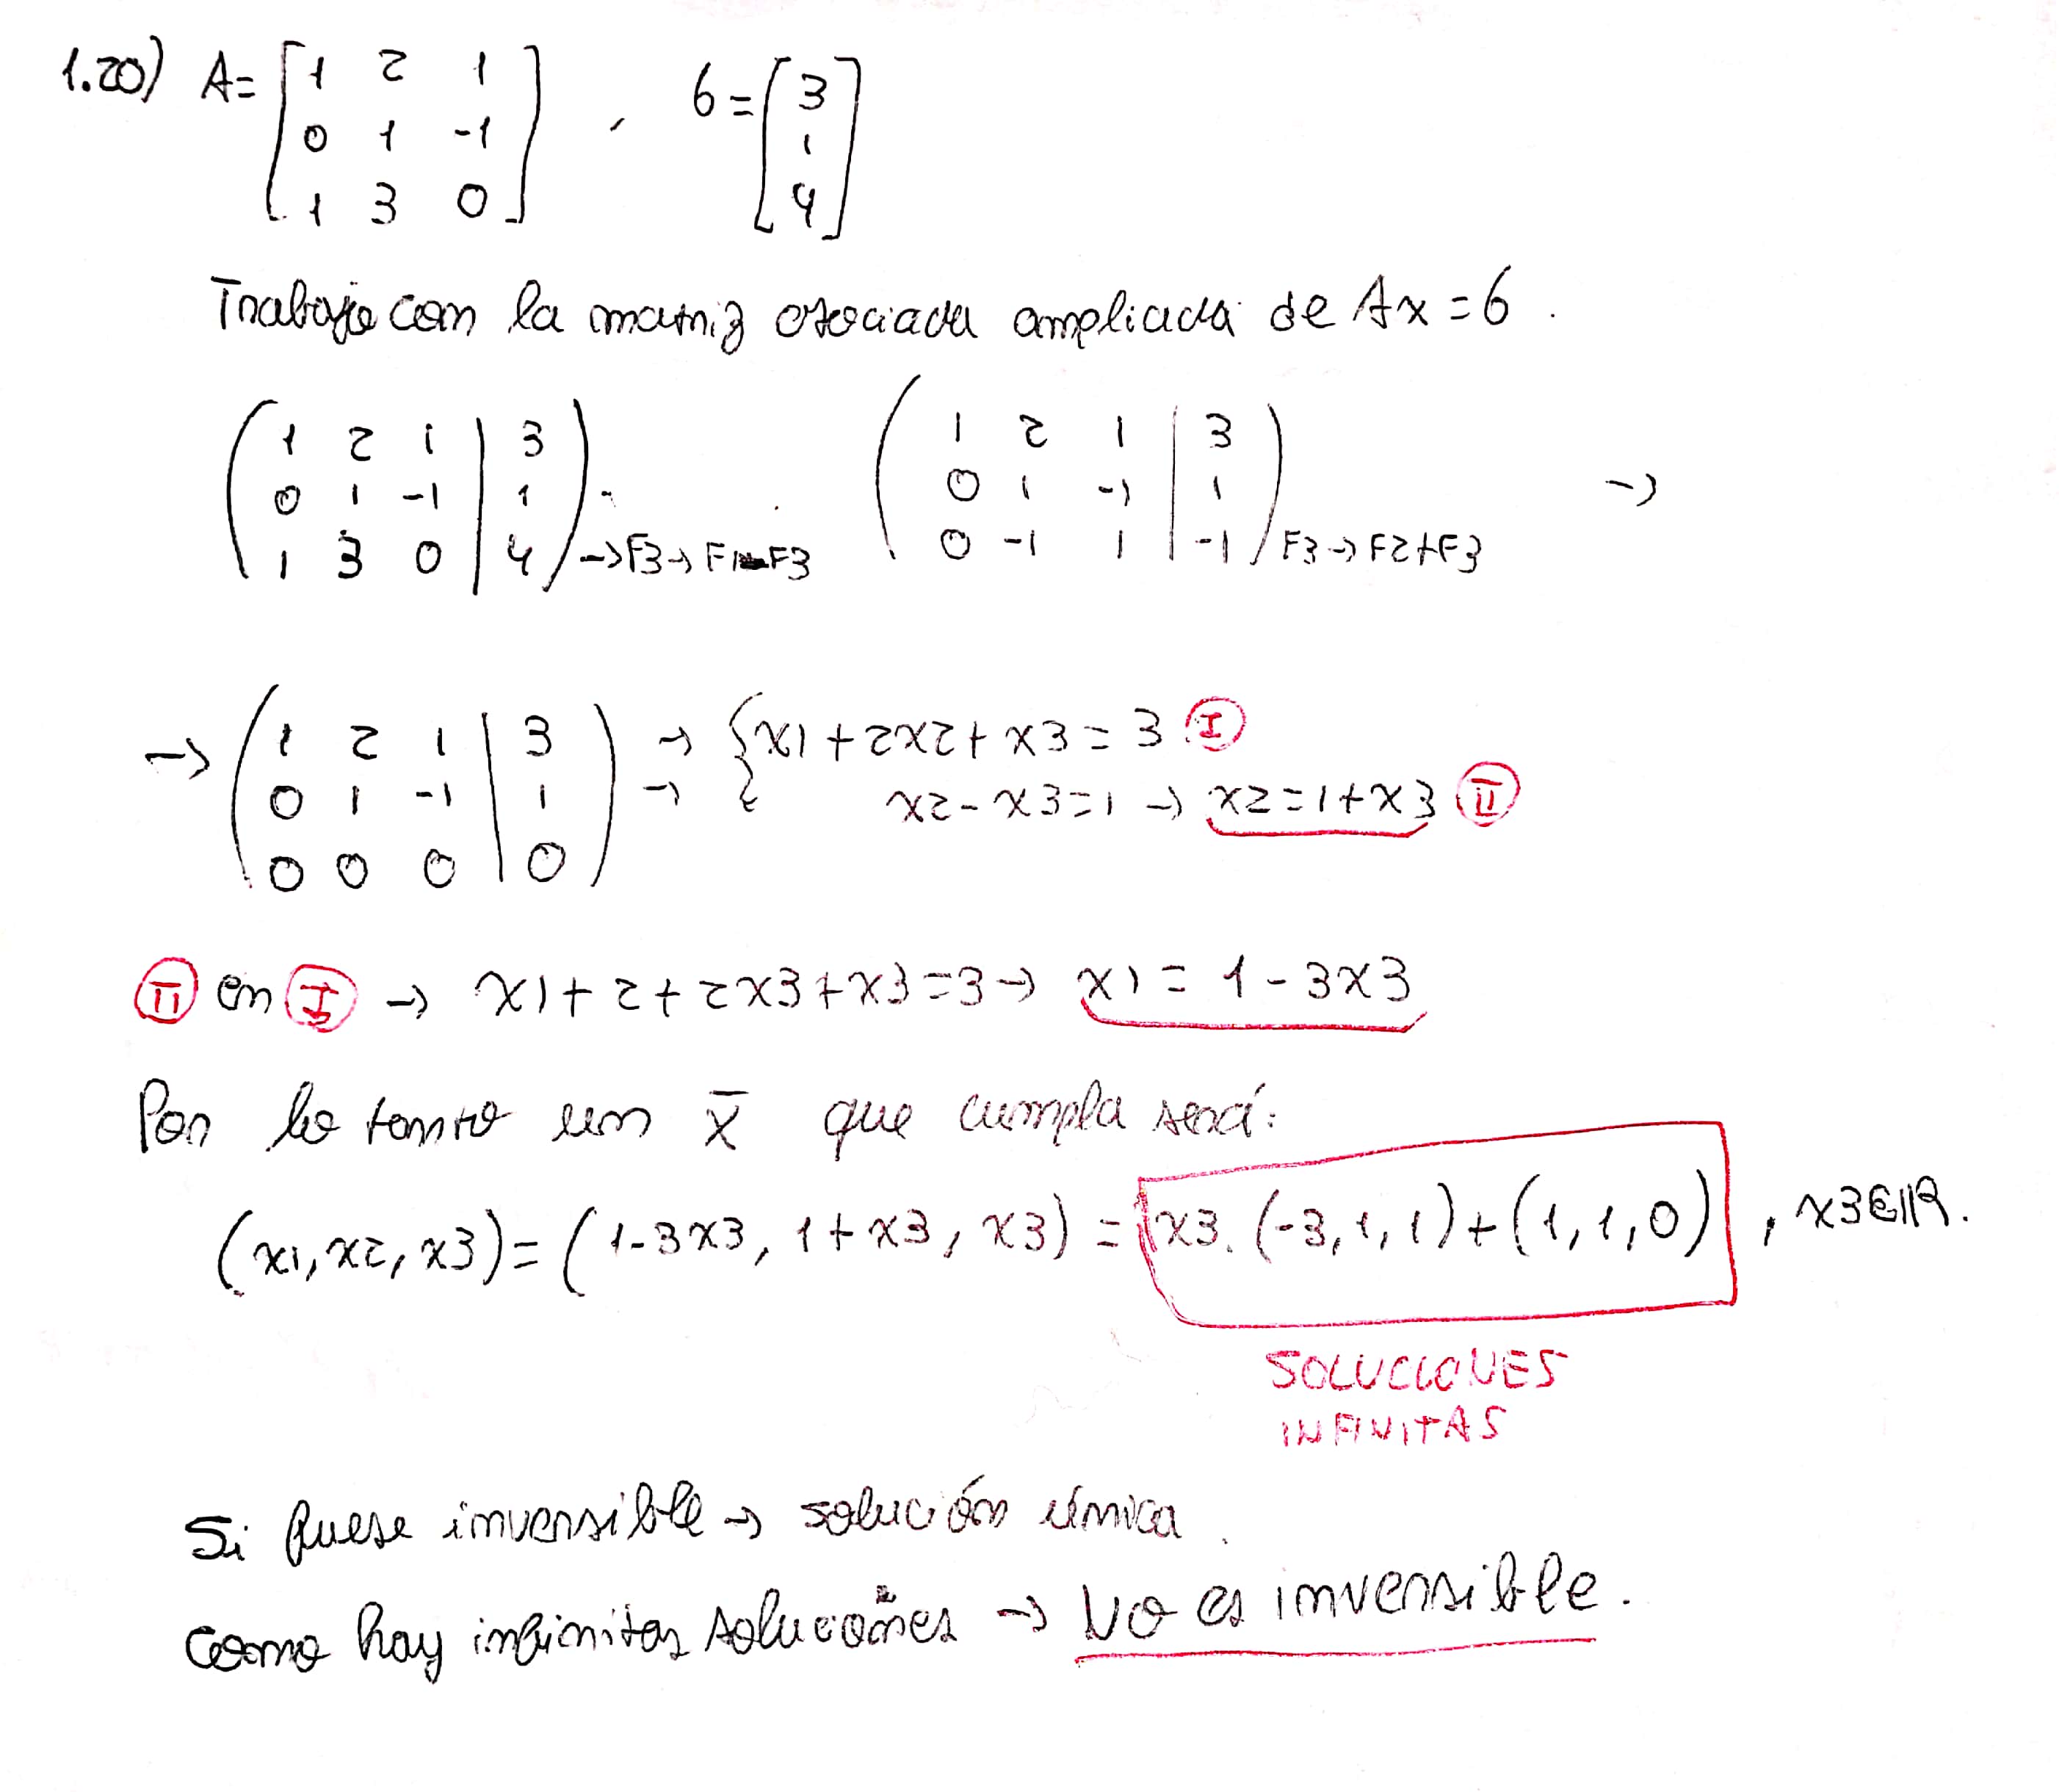 1.20) A= [1 2 1 , b= [3
0 1 -1 1
1 3 0] 4]
Trabajo con la matriz asociada ampliada de Ax = b.
(1 2 1 | 3 (1 2 1 | 3
0 1 -1 | 1 0 1 -1 | 1 →
1 3 0 | 4) →F3→ F1-F3 0 -1 1 | -1) F3→ F2+F3
→ (1 2 1 | 3 → {x1+2x2+x3=3 I
0 1 -1 | 1 → x2-x3=1 → x2=1+x3 II
0 0 0 | 0)
II en I → x1+2+2x3+x3=3→ x1 = 1-3x3
Por lo tanto un x̄ que cumpla será:
(x1,x2,x3)=(1-3x3, 1+x3, x3) = x3.(-3,1,1)+(1,1,0) , x3∈ℝ.
SOLUCIONES
INFINITAS
Si fuese inversible → solución única.
como hay infinitas soluciones → NO es inversible.